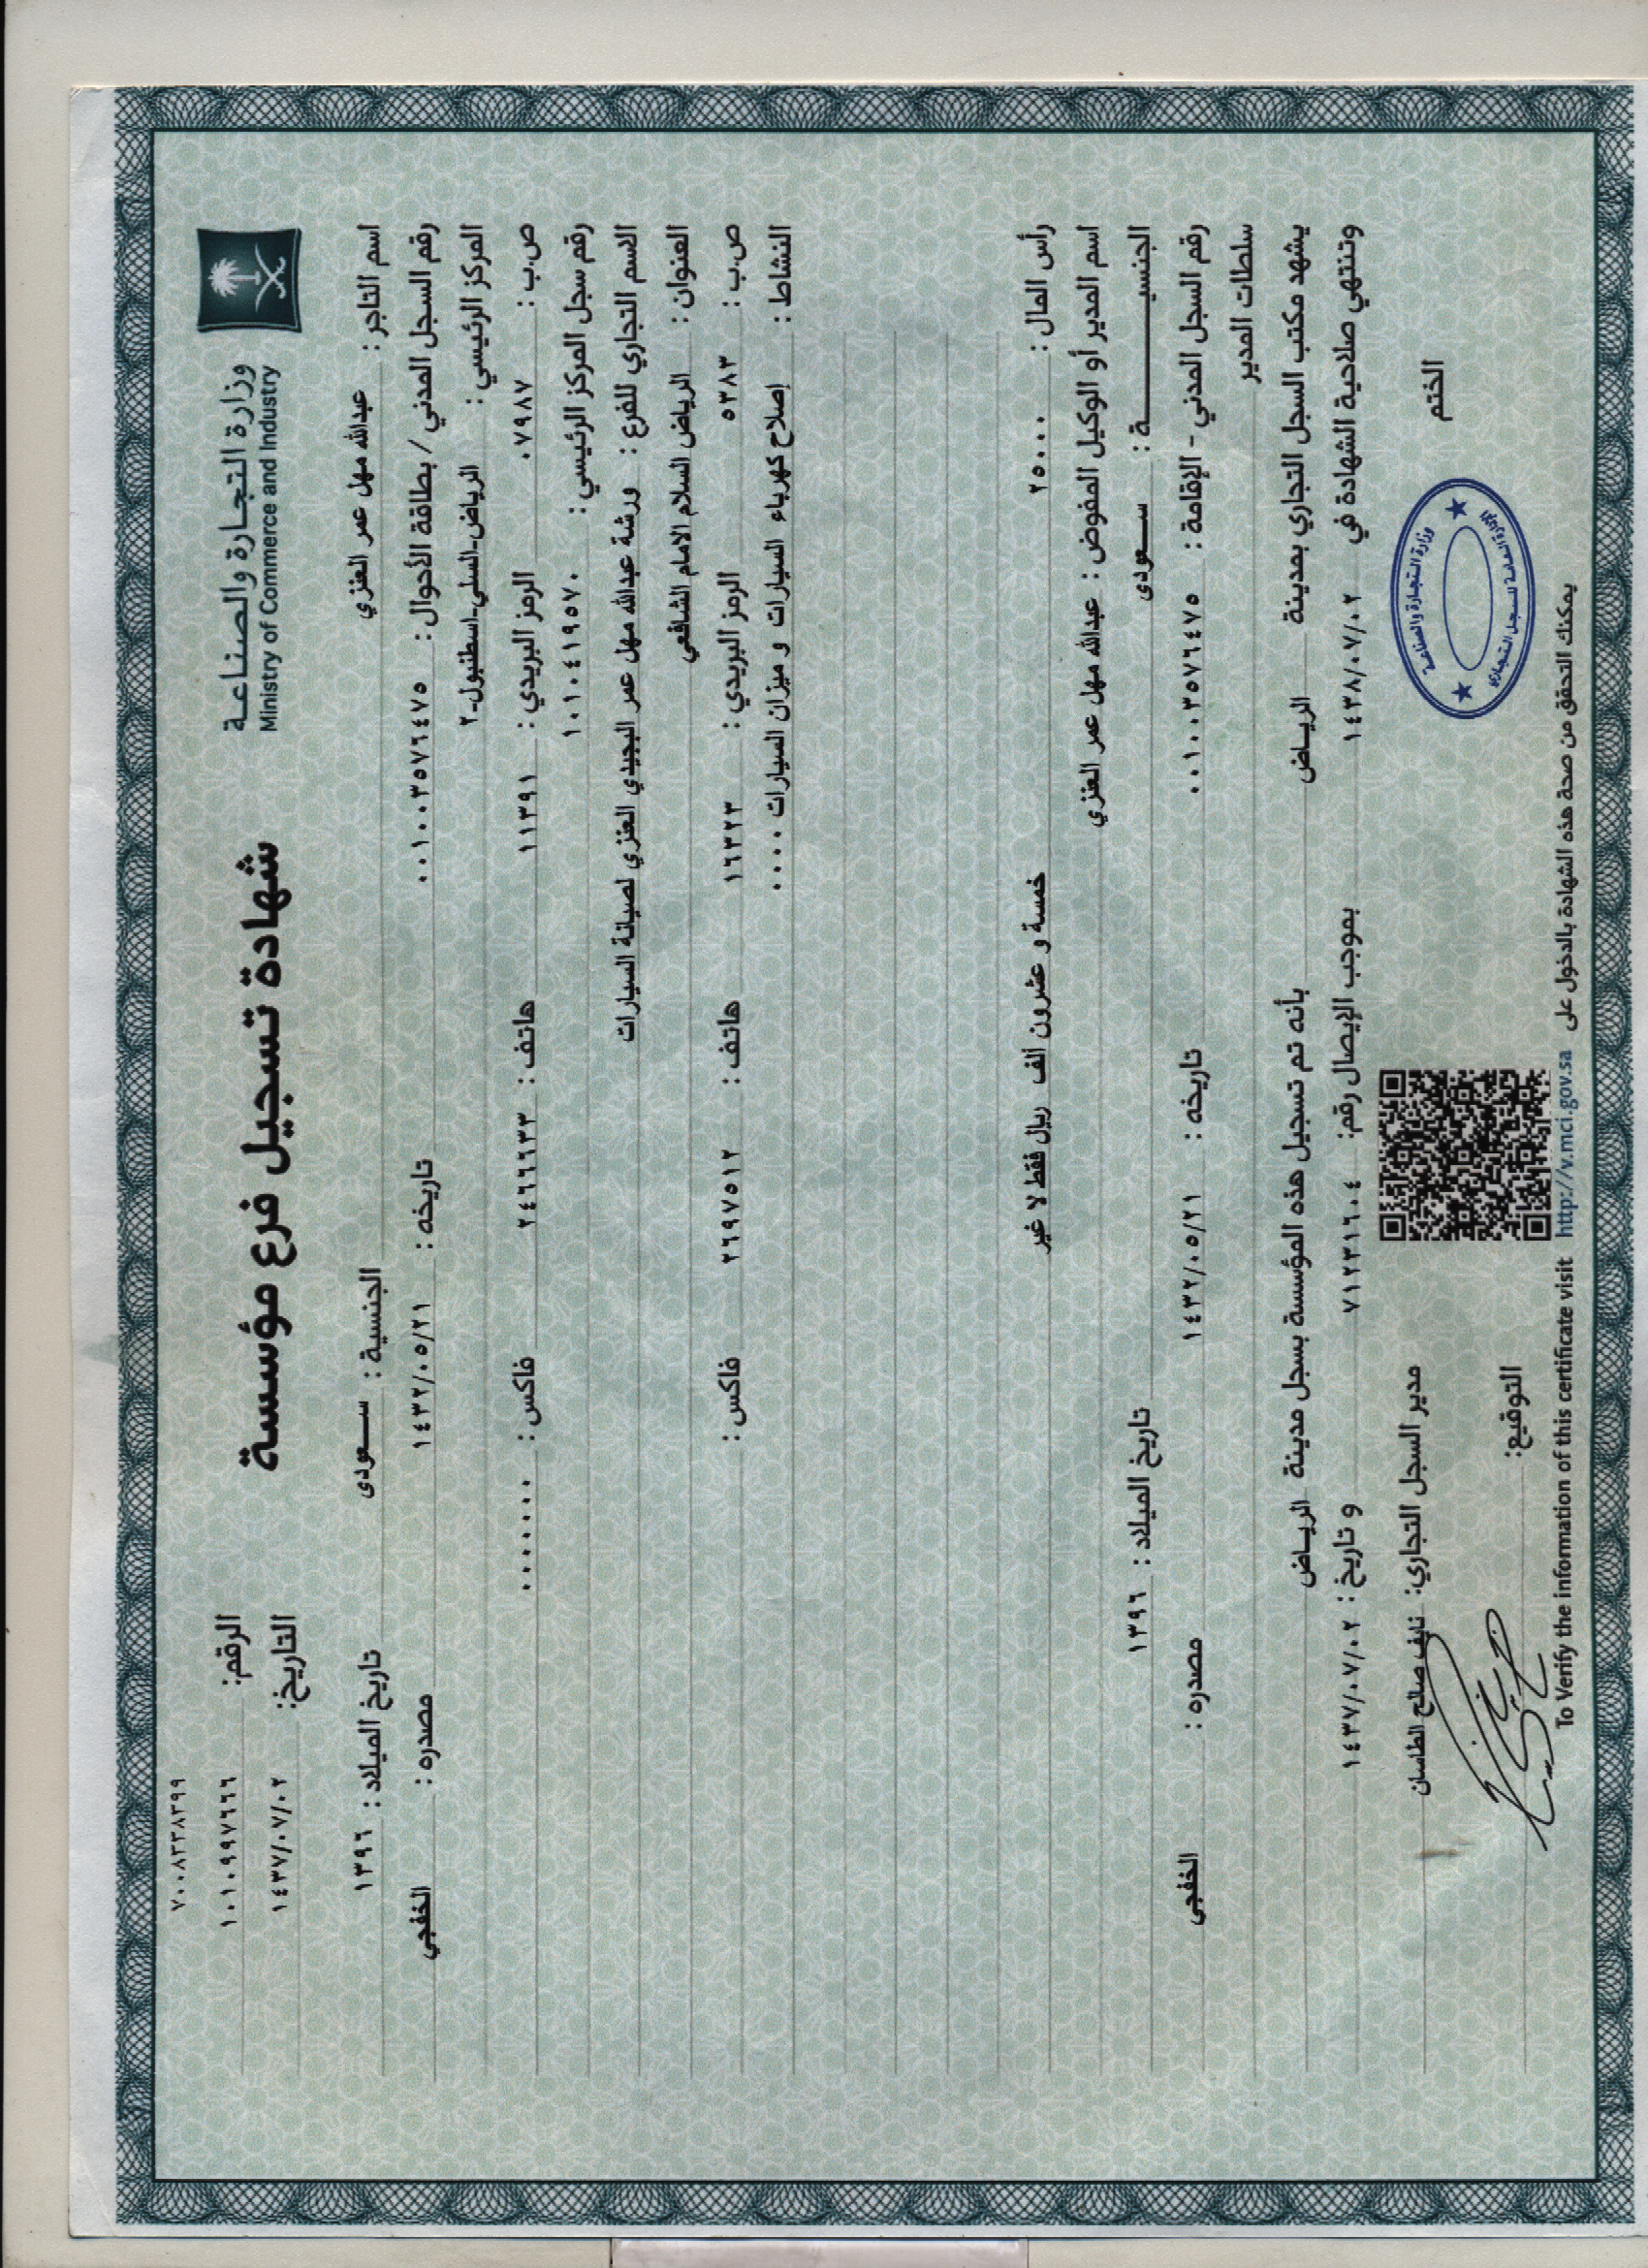 ٧٠٠٨٣٣٨٣٩٩
وزارة التجارة والصناعة
Ministry of Commerce and Industry
شهادة تسجيل فرع مؤسسة
الرقم: ١٠١٠٩٩٧٦٦٦
التاريخ: ١٤٣٧/٠٧/٠٢
اسم التاجر : عبدالله مهل عمر العنزي الجنسية : سعودى تاريخ الميلاد : ١٣٩٦
رقم السجل المدني / بطاقة الأحوال : ٠٠١٠٠٣٥٧٦٤٧٥ تاريخه : ١٤٣٢/٠٥/٢١ مصدره : الخفجي
المركز الرئيسي : الرياض-السلي-اسطنبول-٢
ص.ب : ٠٧٩٨٧ الرمز البريدي : ١١٣٩١ هاتف : ٢٤٦٦٦٣٣ فاكس : ٠٠٠٠٠٠٠
رقم سجل المركز الرئيسي : ١٠١٠٤١٩٥٧٠
الاسم التجاري للفرع : ورشة عبدالله مهل عمر البجيدي العنزي لصيانة السيارات
العنوان : الرياض السلام الامام الشافعي
ص.ب : ٥٣٨٣ الرمز البريدي : ١٦٣٢٣ هاتف : ٢٦٩٧٥١٢ فاكس :
النشاط : إصلاح كهرباء السيارات و ميزان السيارات ٠٠٠٠
رأس المال : ٢٥٠٠٠ خمسة و عشرون ألف ريال فقط لا غير
اسم المدير أو الوكيل المفوض : عبدالله مهل عمر العنزي
الجنسيـــــــة : سعودى تاريخ الميلاد : ١٣٩٦
رقم السجل المدني - الإقامة : ٠٠١٠٠٣٥٧٦٤٧٥ تاريخه : ١٤٣٢/٠٥/٢١ مصدره : الخفجي
سلطات المدير
يشهد مكتب السجل التجاري بمدينة الرياض بأنه تم تسجيل هذه المؤسسة بسجل مدينة الرياض
وتنتهي صلاحية الشهادة في ١٤٣٨/٠٧/٠٢ بموجب الإيصال رقم: ٧١٢٣١٦٠٤ و تاريخ : ١٤٣٧/٠٧/٠٢
الختم
مدير السجل التجاري: نايف صالح الطاسان
وزارة التجارة والصناعة
التوقيع:
يمكنك التحقق من صحة هذه الشهادة بالدخول على http://v.mci.gov.sa To Verify the information of this certificate visit